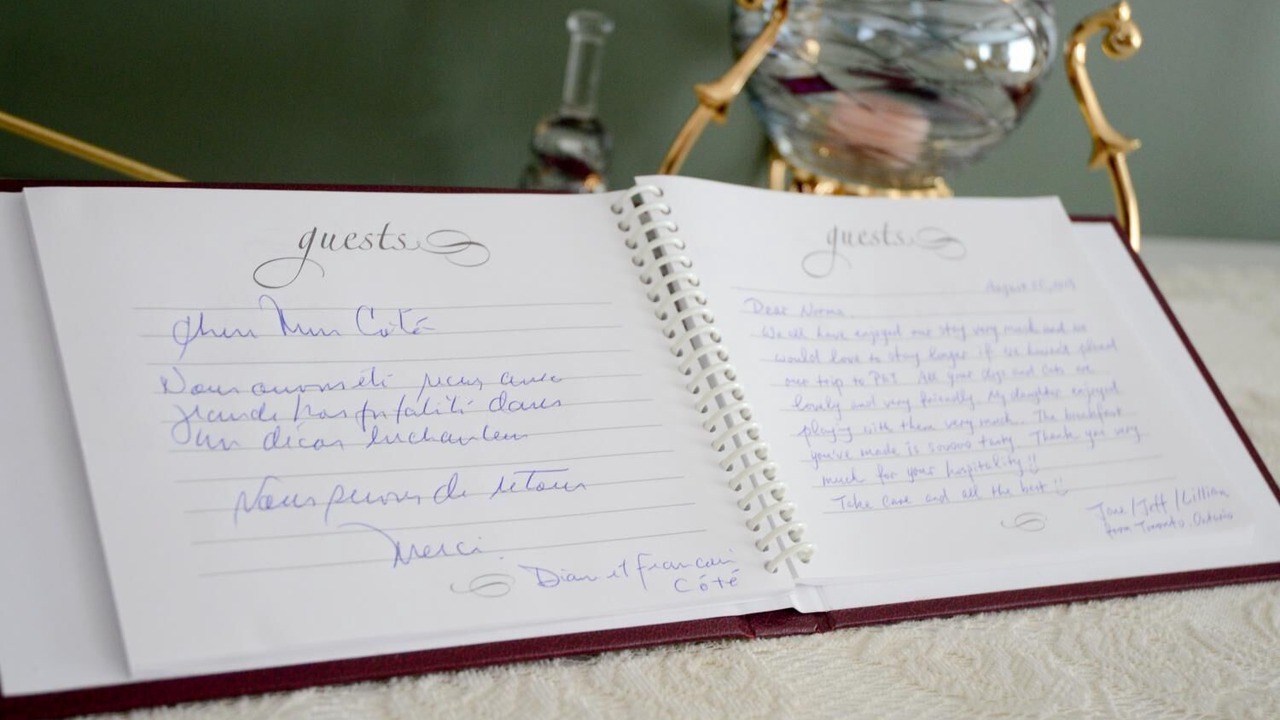 guests
Cher Mme Côté
Nous avons été reçus avec
grande hospitalité dans
un décor enchanteur
Nous serons de retour
Merci.
Dian et Francois
Côté
guests
August
Dear Norma
We all have enjoyed our stay very much and we
would love to stay longer if we haven't planed
our trip to PEI. All your dogs and cats are
lovely and very friendly. My daughter enjoyed
playing with them very much. The breakfast
you've made is soooo tasty. Thank you very
much for your hospitality!!
Take care and all the best!!
Jane/Jeff/Lillian
from Toronto, Ontario